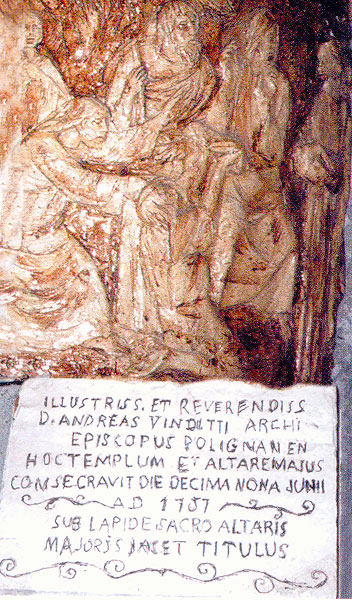 ILLUSTRISS. ET REVERENDISS
D. ANDREAS VINDITTI ARCHI
EPISCOPUS POLIGNANEN
HOC TEMPLUM ET ALTARE MAJUS
CONSECRAVIT DIE DECIMA NONA JUNII
AD 1757
SUB LAPIDE SACRO ALTARIS
MAJORIS JACET TITULUS